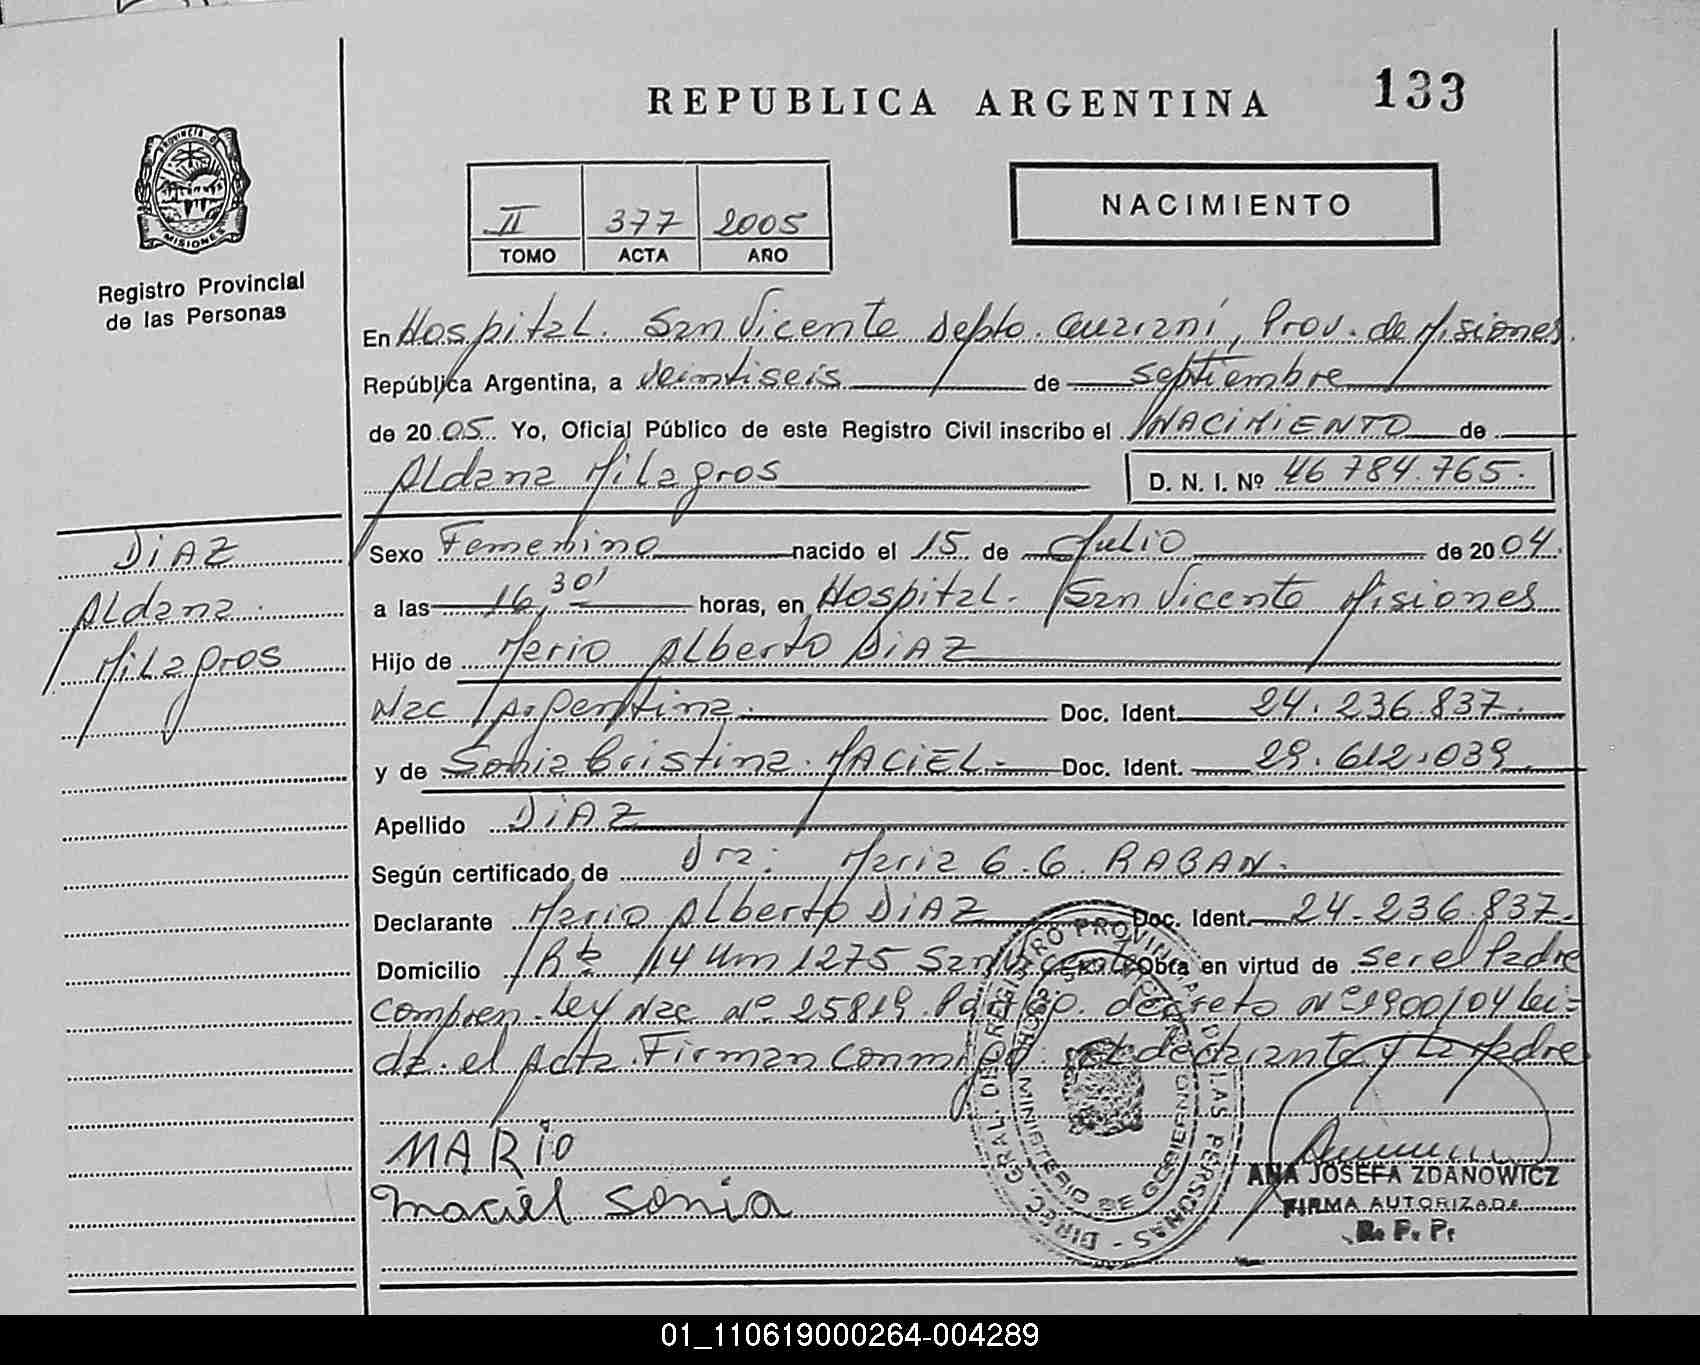 REPUBLICA ARGENTINA
133
PROVINCIA D
MISIONES
Registro Provincial
de las Personas
II 377 2005
TOMO ACTA AÑO
NACIMIENTO
En Hospital. San Vicente Depto. Guaraní, Prov. de Misiones.
República Argentina, a veintiseis de septiembre
de 2005. Yo, Oficial Público de este Registro Civil inscribo el NACIMIENTO de
Aldana Milagros
D. N. I. Nº 46 784.765.
DIAZ
Aldana.
Milagros
Sexo Femenino nacido el 15 de Julio de 2004.
a las 16,30' horas, en Hospital. San Vicente Misiones
Hijo de Mario Alberto DIAZ
Nac Argentina. Doc. Ident. 24.236.837.
y de Sonia Cristina. MACIEL. Doc. Ident. 29.612.039
Apellido DIAZ
Según certificado de Dra: Maria G. G. RABAN.
Declarante Mario Alberto DIAZ Doc. Ident. 24.236.837.
Domicilio Rta 14 Km 1275 San Vicente Obra en virtud de ser el Padre
Ley Nac Nº 25819. decreto Nº 1900/04 Lei=
da el Acta. Firman conmigo el declarante y la Madre
MARIO
maciel Sonia
DIREC. GRAL. DEL REGISTRO PROVINCIAL DE LAS PERSONAS
MINISTERIO DE GOBIERNO
ANA JOSEFA ZDANOWICZ
FIRMA AUTORIZADA
R. P. P.
01_110619000264-004289